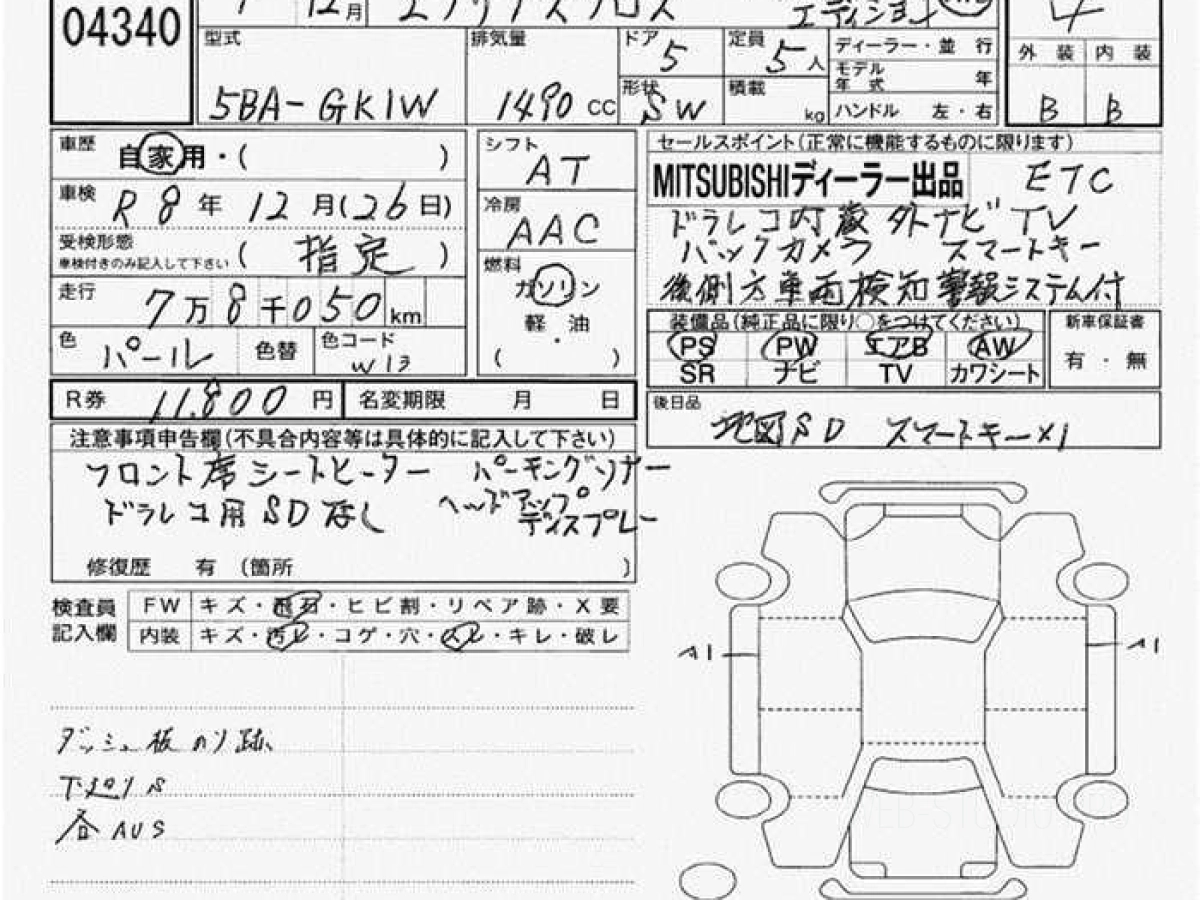 04340
12月
エクリプスクロス
エディション
4
型式
5BA-GK1W
排気量
1490 CC
ドア
5
定員
5人
形状
SW
積載
kg
ディーラー・並行
モデル年式 年
ハンドル 左・右
外装 内装
B B
車歴 自家用・( )
車検 R8年12月(26日)
受検形態
車検付きのみ記入して下さい ( 指定 )
走行 7万8千050km
色 パール 色替 色コード W13
シフト
AT
冷房
AAC
燃料
ガソリン
軽・油
( )
セールスポイント(正常に機能するものに限ります)
MITSUBISHIディーラー出品 ETC
ドラレコ内蔵外ナビ TV
バックカメラ スマートキー
後側方車両検知警報システム付
装備品(純正品に限り○をつけてください)
PS PW エアB AW
SR ナビ TV カワシート
新車保証書
有・無
R券 11,800円 名変期限 月 日
後日品
地図SD スマートキー×1
注意事項申告欄(不具合内容等は具体的に記入して下さい)
フロント席シートヒーター パーキングソナー
ドラレコ用SDなし ヘッドアップディスプレー
修復歴 有 (箇所 )
検査員記入欄
FW キズ・飛石・ヒビ割・リペア跡・X要
内装 キズ・汚レ・コゲ・穴・スレ・キレ・破レ
A1 A1
ダッシュ板のり跡
下廻りS
各AUS